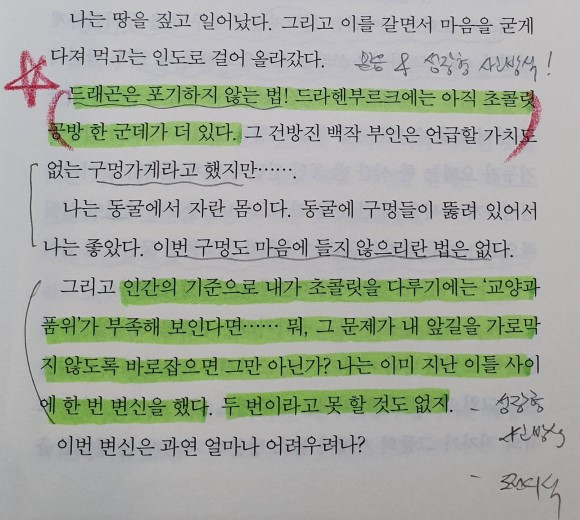 나는 땅을 짚고 일어났다. 그리고 이를 갈면서 마음을 굳게
다져 먹고는 인도로 걸어 올라갔다.
성장형 사고방식!
드래곤은 포기하지 않는 법! 드라헨부르크에는 아직 초콜릿
공방 한 군데가 더 있다. 그 건방진 백작 부인은 언급할 가치도
없는 구멍가게라고 했지만……
나는 동굴에서 자란 몸이다. 동굴에 구멍들이 뚫려 있어서
나는 좋았다. 이번 구멍도 마음에 들지 않으리란 법은 없다.
그리고 인간의 기준으로 내가 초콜릿을 다루기에는 ‘교양과
품위’가 부족해 보인다면…… 뭐, 그 문제가 내 앞길을 가로막
지 않도록 바로잡으면 그만 아닌가? 나는 이미 지난 이틀 사이
에 한 번 변신을 했다. 두 번이라고 못 할 것도 없지.
성장형
사고방식
이번 변신은 과연 얼마나 어려우려나?